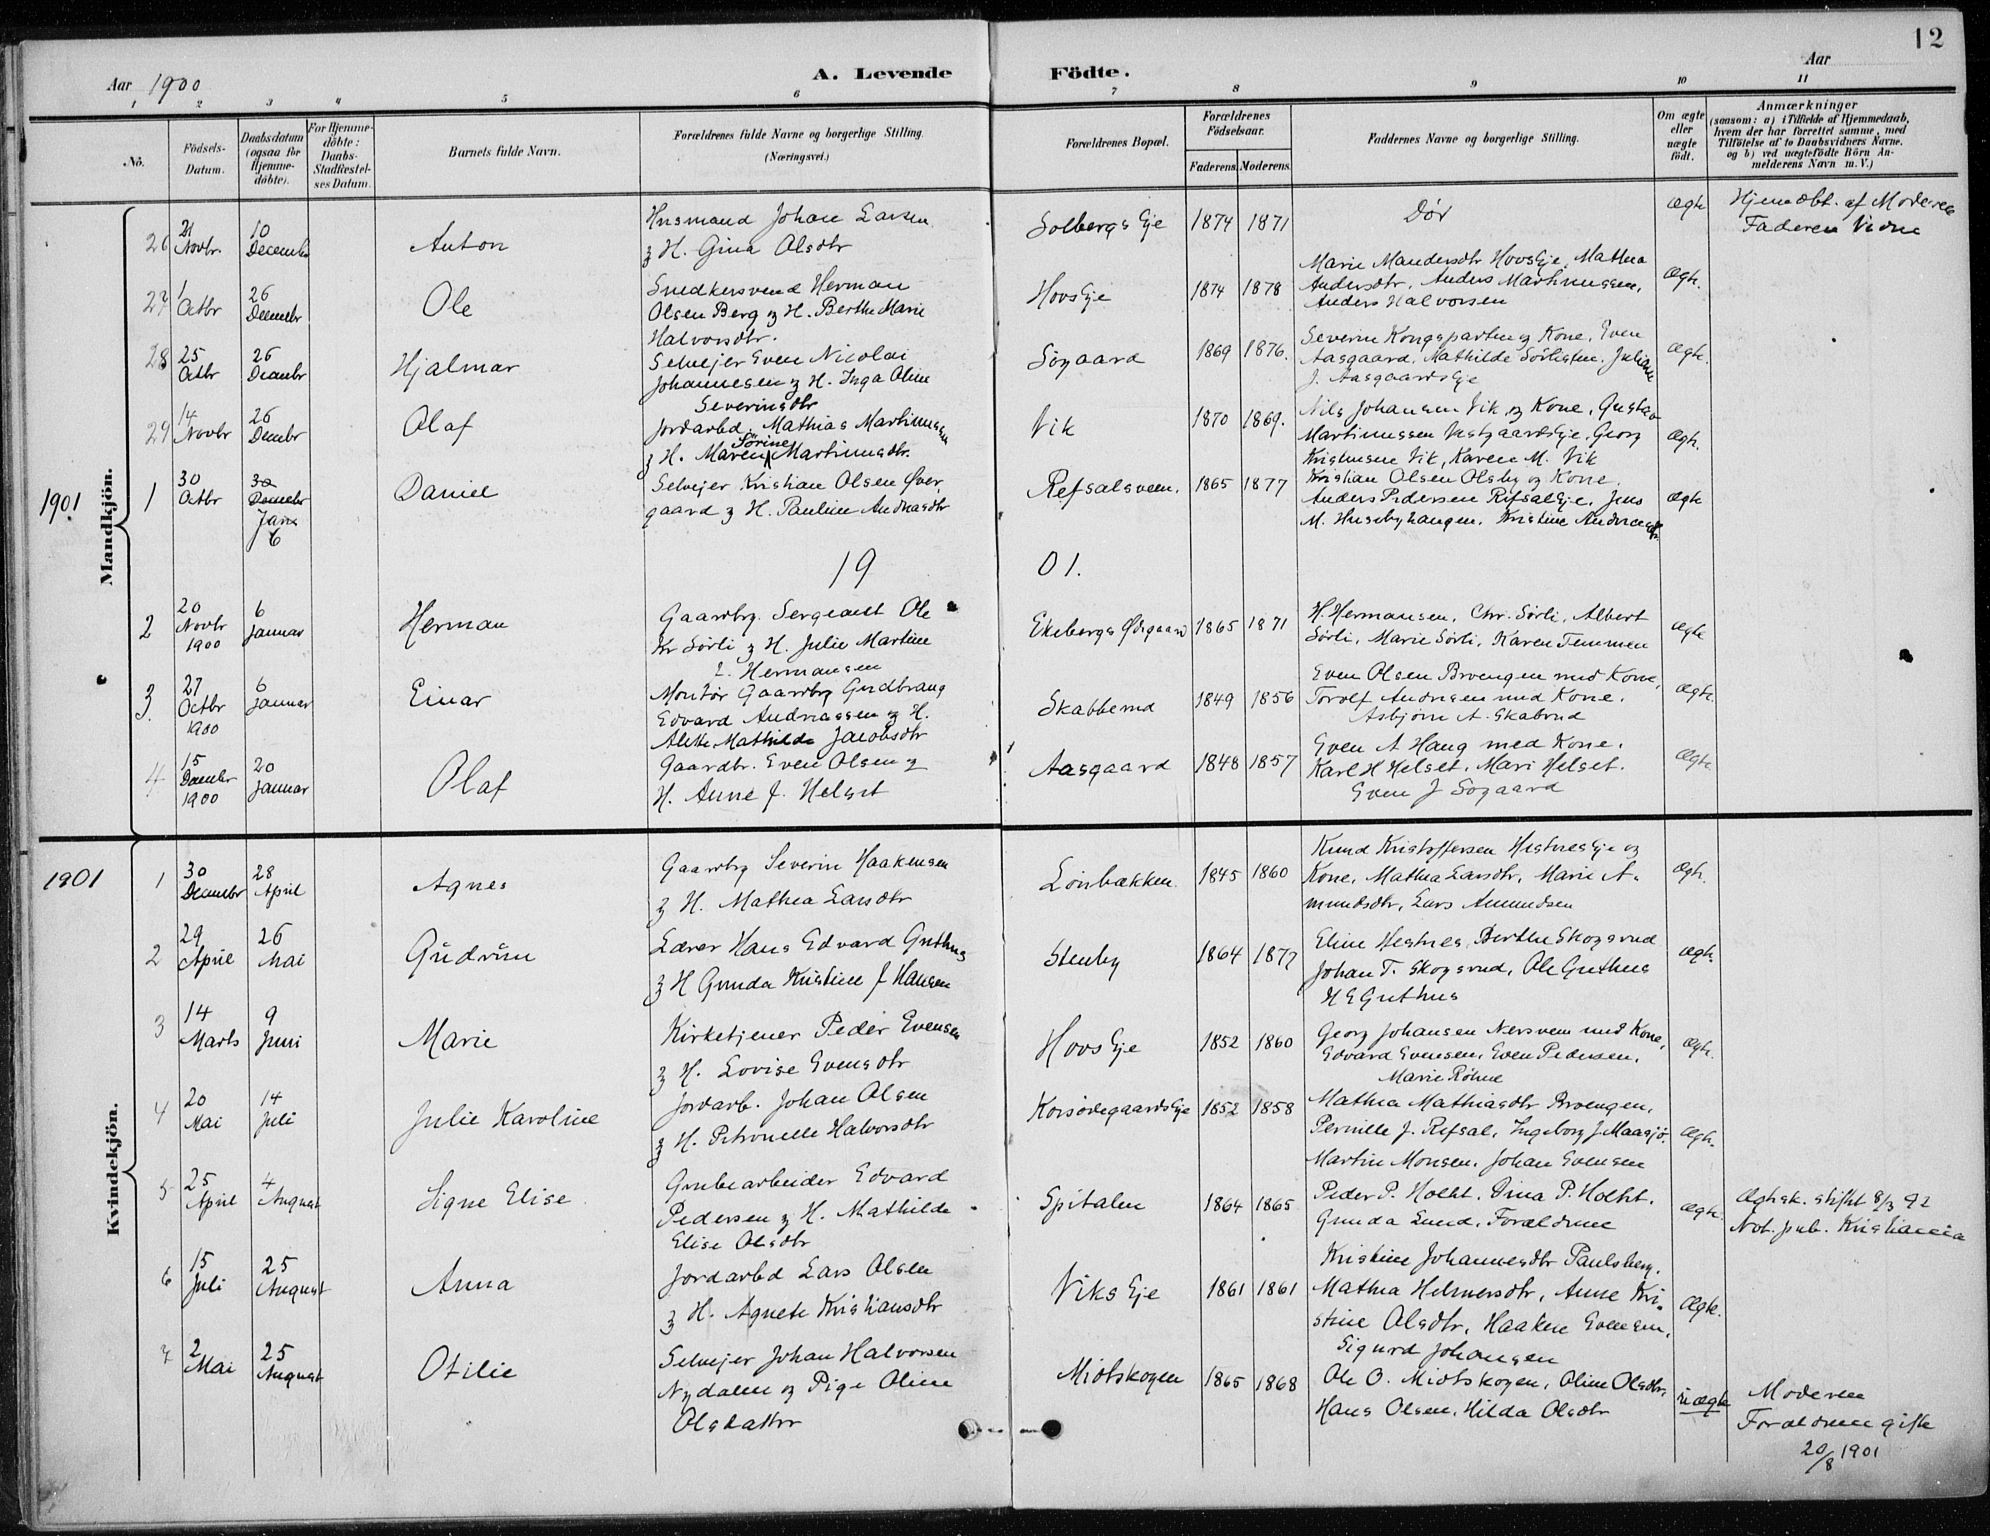 12
Aar 1900
A. Levende Födte.
Aar
1 2 3 4 5 6 7 8 9 10 11
No.
Födsels-Datum.
Daabsdatum (ogsaa for Hjemme-döbte).
For Hjemme-döbte: Daabs-Stadfæstel-ses Datum.
Barnets fulde Navn.
Forældrenes fulde Navne og borgerlige Stilling.
(Næringsvei.)
Forældrenes Bopæl.
Forældrenes Födselsaar.
Faderens. Moderens.
Faddernes Navne og borgerlige Stilling.
Om ægte eller uægte födt.
Anmærkninger
(saasom: a) i Tilfælde af Hjemmedaab, hvem der har forrettet samme, med Tilföielse af to Daabsvidners Navne, og b) ved uægtefödte Börn Anmelderens Navn m. V.)
Mandkjön.
26 21 Novbr. 10 December Anton
Husmand Johan Larsen
& H. Gina Olsdtr
Solbergs Eje 1874 1871 Död Ægte
Hjemdöbt. af Moderen
Faderen Vidne
27 1 Octbr 26 Decembr Ole
Snedkersvend Herman
Olsen Berg & H. Berthe Marie
Halvorsdtr.
HovsEje 1874 1878
Marie Mandersdtr HovsEje, Mathea
Andersdtr, Anders Martinussen,
Anders Halvorsen
Ægte.
28 25 Octbr 26 Decembr Hjalmar
Selvejer Even Nicolai
Johannesen & H. Inga Oline
Severinsdtr
Sögaard 1869 1876.
Severin Kongsparten og Kone, Even
Aasgaard, Mathilde Sörlisten, Juliane
J. AasgaardsEje
Ægte.
29 14 Novbr 26 Decembr Olaf
Jordarbd. Mathias Martinussen
& H. Maren Sörine Martinusdtr.
Vik 1870 1869.
Nils Johansen Vik og Kone, Gustav
Martinussen VestgaardsEje, Georg
Kristiansen Vik, Karen M. Vik
Ægte.
1901 1 30 Octbr 30 Decembr Janr 6 Daniel
Selvejer Kristian Olsen Över
gaard & H. Pauline Andreasdtr
Refsalsveen. 1865 1877
Kristian Olsen Olsby og Kone.
Anders Pedersen RefsalEje, Jens
M. Husebyhaugen, Kristine Andreasdtr.
Ægte
1901.
2 20 Novbr 1900 6 Januar Herman
Gaardbrg. Sergeant Ole
Kr Sörli & H. Julie Martine
L. Hermansen
Ekebergs Ödegaard 1865 1871
H. Hermansen, Chr. Sörli, Albert
Sörli, Marie Sörli, Karen Temmen
Ægte
3. 27 Octbr 1900 6 Januar Einar
Montör Gaardbrg Gudbrang
Edvard Andreassen & H.
Alette Mathilde Jacobsdtr
Skabberud 1849 1856
Even Olsen Brvengen med Kone,
Torolf Andresen med Kone.
Asbjörn A. Skabrud
Ægte.
4 15 Decembr 1900 20 Januar Olaf
Gaardbr. Even Olsen &
H. Anne J. Helset
Aasgaard 1848 1857
Even A Haug med Kone.
Karl H Helset. Mari Helset.
Even J Sogaard
Ægte.
Kvindekjön.
1901 1 30 December 28 April Agnes
Gaardbrg Severin Haakensen
& H. Mathea Larsdtr
Lönbækken. 1845 1860
Knud Kristoffersen HestnesEje og
Kone, Mathea Larsdtr, Marie A-
mundsdtr, Lars Amundsen
Ægte.
2 29 April 26 Mai Gudrun
Lærer Hans Edvard Guthus
& H Gunda Kristine J Hansen
Stenby 1864 1877
Eline Hestnes, Berthe Skogsrud
Johan T. Skogsrud, Ole Guthus
H E Guthus
Ægte.
3 14 Marts 9 Juni Marie
Kirketjener Peder Evensen
& H. Lovise Evensdtr
Hovs Eje 1852 1860
Georg Johansen Nersveen med Kone,
Edvard Evensen, Even Pedersen,
Marie Röhne
Ægte.
4 20 Mai 14 Juli Julie Karoline
Jordarb. Johan Olsen
& H. Petronelle Halvorsdtr
KorsödegaardsEje 1852 1858
Mathea Mathiasdtr Brvengen,
Pernille J. Refsal, Ingeborg J Maasjö.
Martin Monsen, Johan Evensen
Ægte.
5 25 April 4 August Signe Elise
Grubearbeider Edvard
Pedersen & H. Mathilde
Elise Olsdtr
Spitalen 1864 1865
Peder P. Holht. Dina P. Holht.
Gunda Lund, Forældrene
Ægte.
Ægtsk. stiftet 8/3 92
Not. pub. Kristiania
6 15 Juli 25 August Anna
Jordarbd Lars Olsen
& H. Agnete Kristiansdtr
Viks Eje 1861 1861
Kristine Johannesdtr Paulsberg.
Mathea Helmersdtr, Anne Kri-
stine Olsdtr, Haaken Evensen,
Sigurd Johansen
Ægte.
7 2 Mai 25 August Otilie
Selvejer Johan Halvorsen
Nydalen og Pige Oline
Olsdatter
Midtskogen 1865 1868
Ole O. Midtskogen, Oline Olsdtr,
Hans Olsen, Hilda Olsdtr
uægte
Moderen
Forældrene gifte
20/8 1901